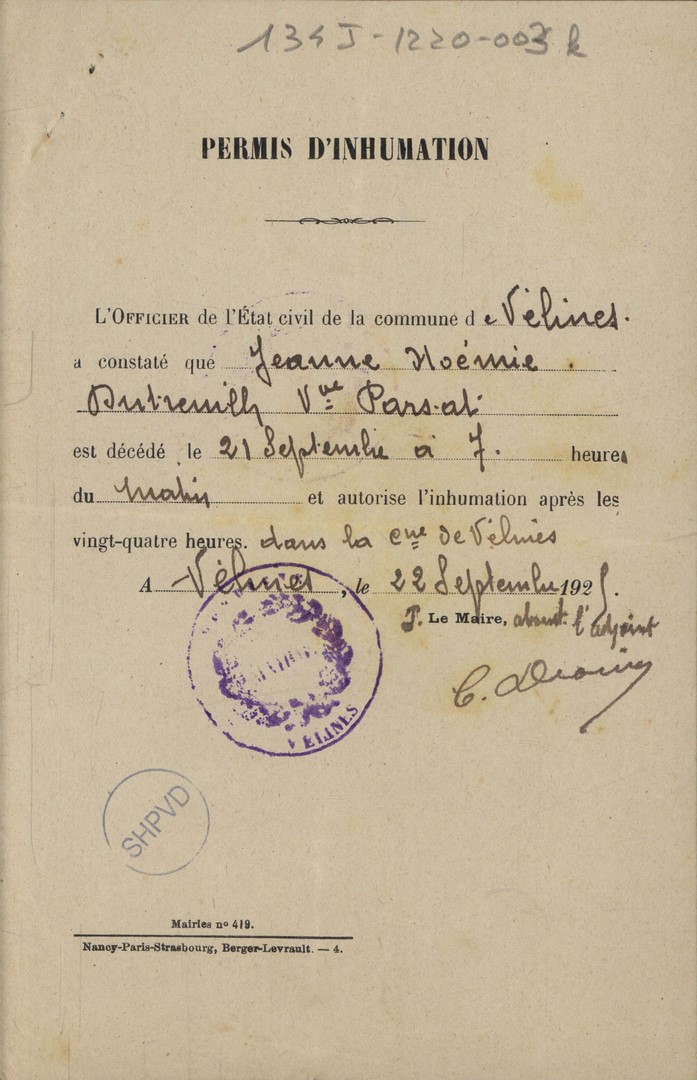 134 J-1220-003 k
PERMIS D'INHUMATION
L'OFFICIER de l'État civil de la commune de Vélines.
a constaté que Jeanne Noémie
Dutreuilh Vve Parsat
est décédé le 21 Septembre à 7. heures
du matin et autorise l'inhumation après les
vingt-quatre heures. dans la cne de Vélines
A Vélines, le 22 Septembre 192
P. Le Maire, absent l'adjoint
C.
VELINES
SHPVD
Mairies nº 419.
Nancy-Paris-Strasbourg, Berger-Levrault. — 4.